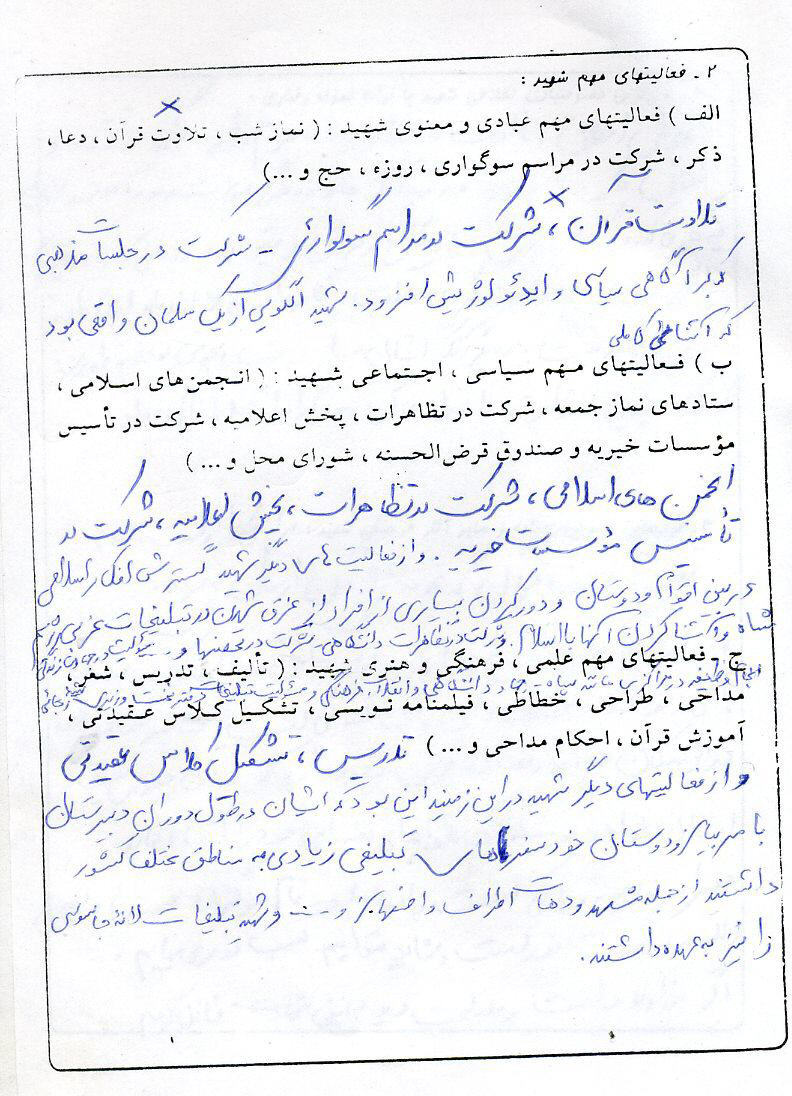 ۲ ـ فعالیتهای مهم شهید :
الف ) فعالیتهای مهم عبادی و معنوی شهید : ( نماز شب ، تلاوت قرآن ، دعا ،
ذکر ، شرکت در مراسم سوگواری ، روزه ، حج و ...)
تلاوت قرآن ، شرکت در مراسم سوگواری ـ شرکت در جلسات مذهبی
که بر آگاهی سیاسی و ایدئولوژیش افزود . شهید الگویی از یک مسلمان واقعی بود
که کاملی
ب ) فعالیتهای مهم سیاسی ، اجتماعی شهید : ( انجمن‌های اسلامی ،
ستادهای نماز جمعه ، شرکت در تظاهرات ، پخش اعلامیه ، شرکت در تأسیس
مؤسسات خیریه و صندوق قرض‌الحسنه ، شورای محل و ... )
انجمن های اسلامی ، شرکت در تظاهرات ، پخش اعلامیه ، شرکت در
تأسیس مؤسسات خیریه . و از فعالیت های دیگر شهید گسترش افکار اسلامی
در بین اقوام و دوستان و دور کردن بسیاری از افراد از غرق شدن در تبلیغات غربی رژیم
شاه و آشنا کردن آنها با اسلام . و شرکت در تظاهرات دانشگاهی ـ شرکت در تحصنها و
ج ـ فعالیتهای مهم علمی ، فرهنگی و هنری شهید : ( تألیف ، تدریس ، شعر ،
انجام وظیفه در مراکزی مانند سپاه ـ جهاد دانشگاهی و انقلاب فرهنگی و مسئولیت
مداحی ، طراحی ، خطاطی ، فیلمنامه نویسی ، تشکیل کلاس عقیدتی ،
آموزش قرآن ، احکام مداحی و ...) تدریس ، تشکیل کلاس عقیدتی
و از فعالیتهای دیگر شهید در این زمینه این بود که ایشان در طول دوران دبیرستان
با مربیان و دوستان خود سفرهای تبلیغی زیادی به مناطق مختلف کشور
داشتند از جمله مشهد و دهات اطراف و اصفهان و ... و شهید تبلیغات لانه جاسوسی
را نیز به عهده داشتند .